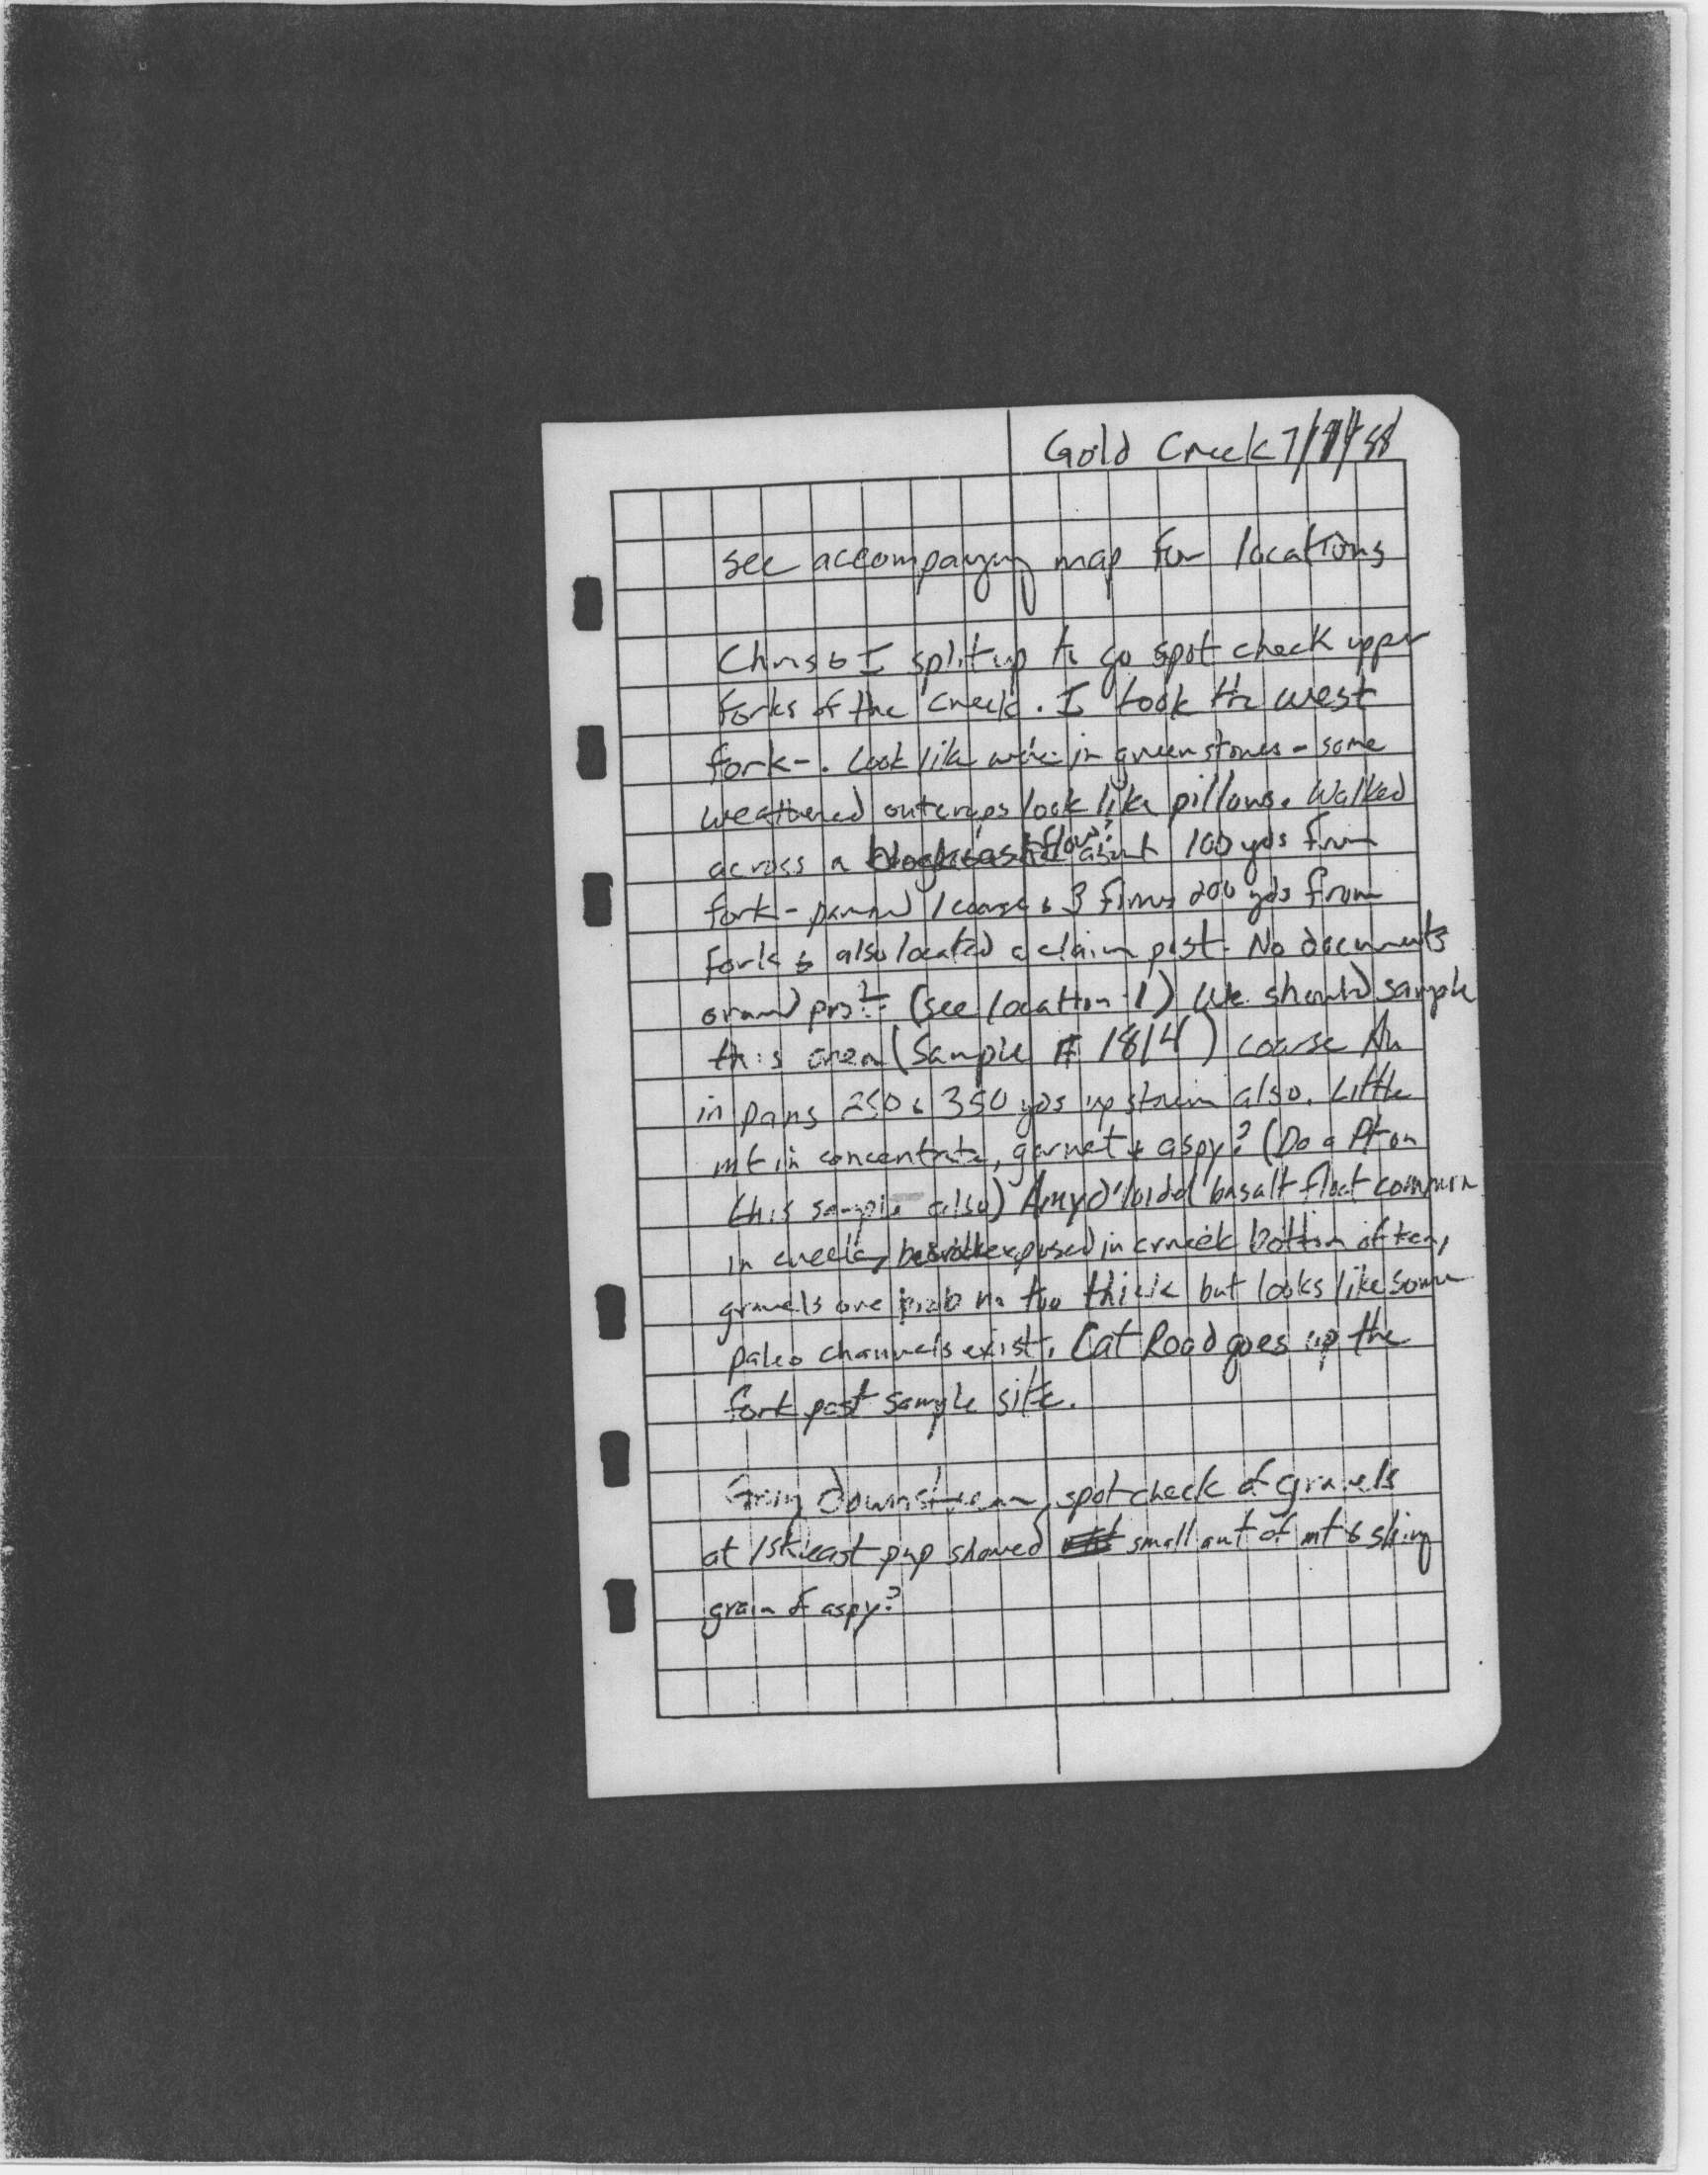 Gold Creek 7/ /88
see accompanying map for locations
Chris & I split up to go spot check upper
forks of the creek. I took the west
fork-. Look like we're in greenstones - some
weathered outcrops look like pillows. Walked
across a flow? about 100 yds from
fork - panned 1 coarse & 3 fines 200 yds from
fork & also located a claim post. No documents
around post - (see location 1) We should sample
this area (Sample # 1814) coarse Au
in pans 250 & 350 yds upstream also. Little
mt in concentrate, garnet & aspy? (Do a Pt on
this sample also) Amyd'loidal basalt float common
in creek, bedrock exposed in creek bottom often,
gravels are prob no too thick but looks like some
paleo channels exist. Cat Road goes up the
fork past sample site.
Going downstream, spot check of gravels
at 1st east pup showed small amt of mt &
grain of aspy?